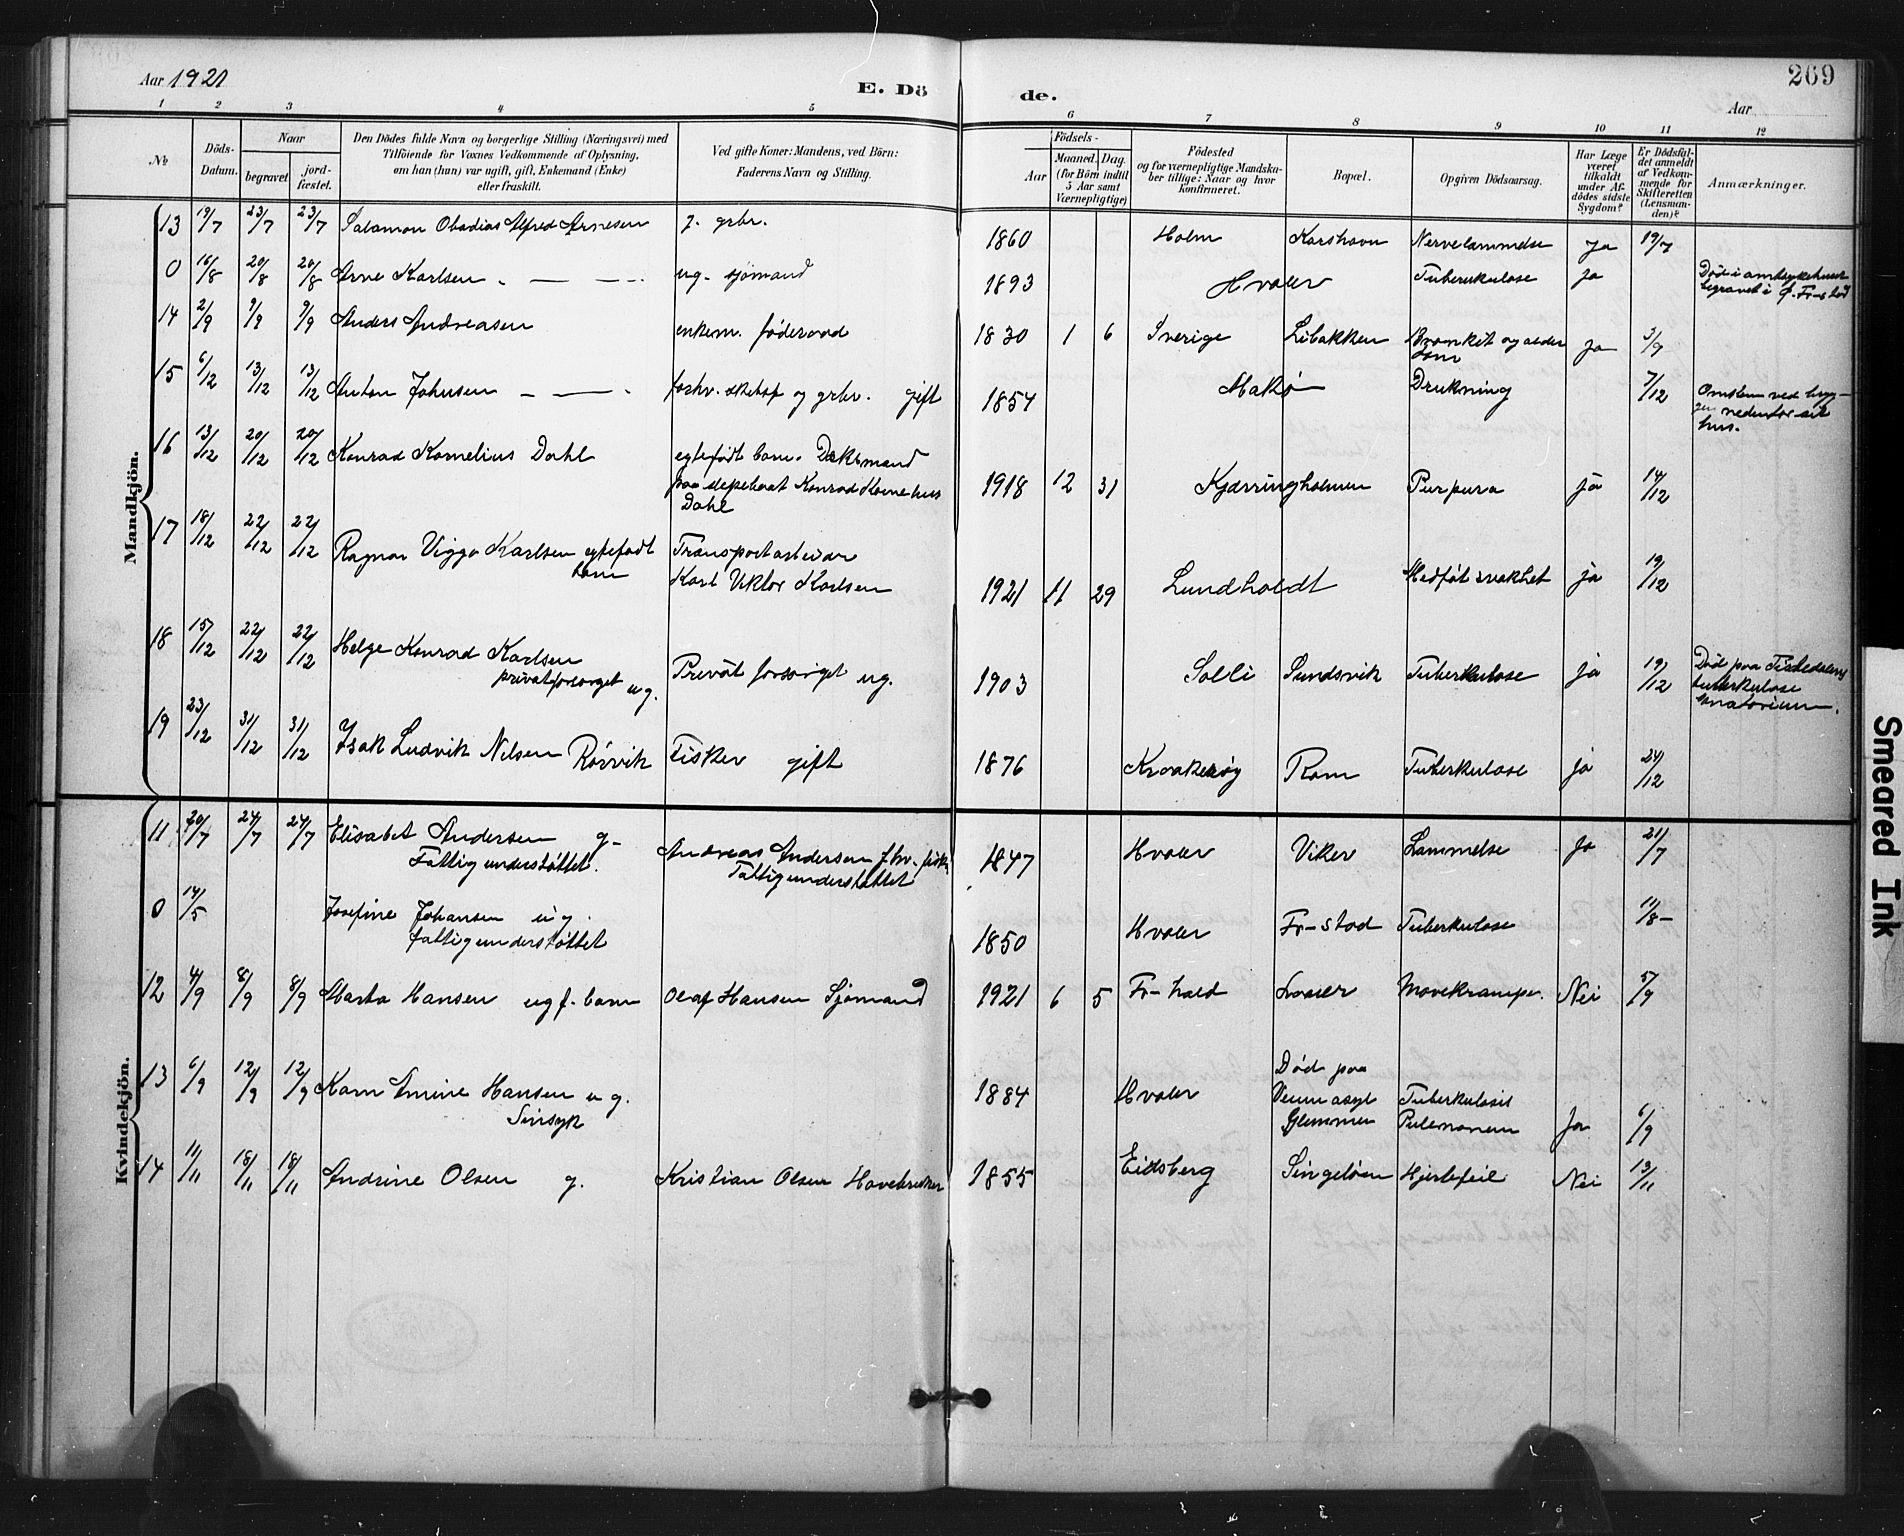 Aar 1921
E. Döde.
Aar
269
1 2 3 4 5 6 7 8 9 10 11 12
No
Döds-
Datum.
Naar
begravet.
jord-
fæstet.
Den Dödes fulde Navn og borgerlige Stilling (Næringsvei) med
Tilföiende for Voxnes Vedkommende af Oplysning,
om han (hun) var ugift, gift, Enkemand (Enke)
eller fraskilt.
Ved gifte Koner: Mandens, ved Börn:
Faderens Navn og Stilling.
Födsels-
Aar
Maaned. Dag.
(for Börn indtil
5 Aar samt
Værnepligtige)
Födested
og for værnepligtige Mandska-
ber tillige: Naar og hvor
konfirmeret.
Bopæl.
Opgiven Dödsaarsag.
Har Læge
været
tilkaldt
under Af-
dödes sidste
Sygdom?
Er Dödsfal-
det anmeldt
af Vedkom-
mende for
Skifteretten
(Lensman-
den)?
Anmærkninger.
Mandkjön.
13 19/7 23/7 23/7 Salamon Obadias Alfred Arnesen g. grbr. 1860 Holm Korshavn Nervelammelse Ja 19/7
0 16/8 20/8 20/8 Arne Karlsen ug. sjømand 1893 Hvaler Tuberkulose Ja Død i amtsykehuset
begravet i Ø. Fr-stad
14 2/9 9/9 9/9 Anders Andreasen enkem. føderaad 1830 1 6 Sverige Libakken Bronkit og alder
dom Ja 3/9
15 6/12 13/12 13/12 Anton Johnsen forhv. skibsf og grbr. gift 1854 Makø Drukning 7/12 Omkom ved bryg-
gen nedenfor sit
hus.
16 13/12 20/12 20/12 Konrad Kornelius Dahl egtefødt barn. Dæksmand
paa slepebaat Konrad Kornelius
Dahl 1918 12 31 Kjærringholmen Purpura ja 14/12
17 18/12 22/12 22/12 Ragnar Viggo Karlsen egtefødt
barn Transportarbeider
Karl Viktor Karlsen 1921 11 29 Lundholdt Medføt svakhet ja 19/12
18 15/12 22/12 22/12 Helge Konrad Karlsen
privatforsørget ug. Privat forsørget ug. 1903 Solli Sundsvik Tuberkulose ja 19/12 Død paa Tistedalens
tuberkulose
sanatorium.
19 23/12 31/12 31/12 Isak Ludvik Nilsen Rørvik Fisker gift 1876 Kraakerøy Ram Tuberkulose ja 24/12
Kvindekjön.
11 20/7 24/7 24/7 Elisabet Andersen g-
Fattigunderstøttet. Andreas Andersen fhv. fisk.
Fattigunderstøttet 1847 Hvaler Viker Lammelse Ja 21/7
0 14/5 Josefine Johansen ug.
fattigunderstøttet 1850 Hvaler Fr-stad Tuberkulose 11/8-
12 4/9 8/9 8/9 Marta Hansen ug f. barn Olaf Hansen Sjømand 1921 6 5 Fr-hald Mavekrampe. Nei 5/9
13 6/9 12/9 12/9 Karn Amine Hansen ug.
Sinsyk 1884 Hvaler Død paa
Veum asyl
Glemmen Tuberkulosis
Pulmonum Ja 6/9
14 11/11 18/11 18/11 Andrine Olsen g. Kristian Olsen Havebruker 1855 Eidsberg Singeløen Hjertefeil Nei 13/11
Smeared Ink